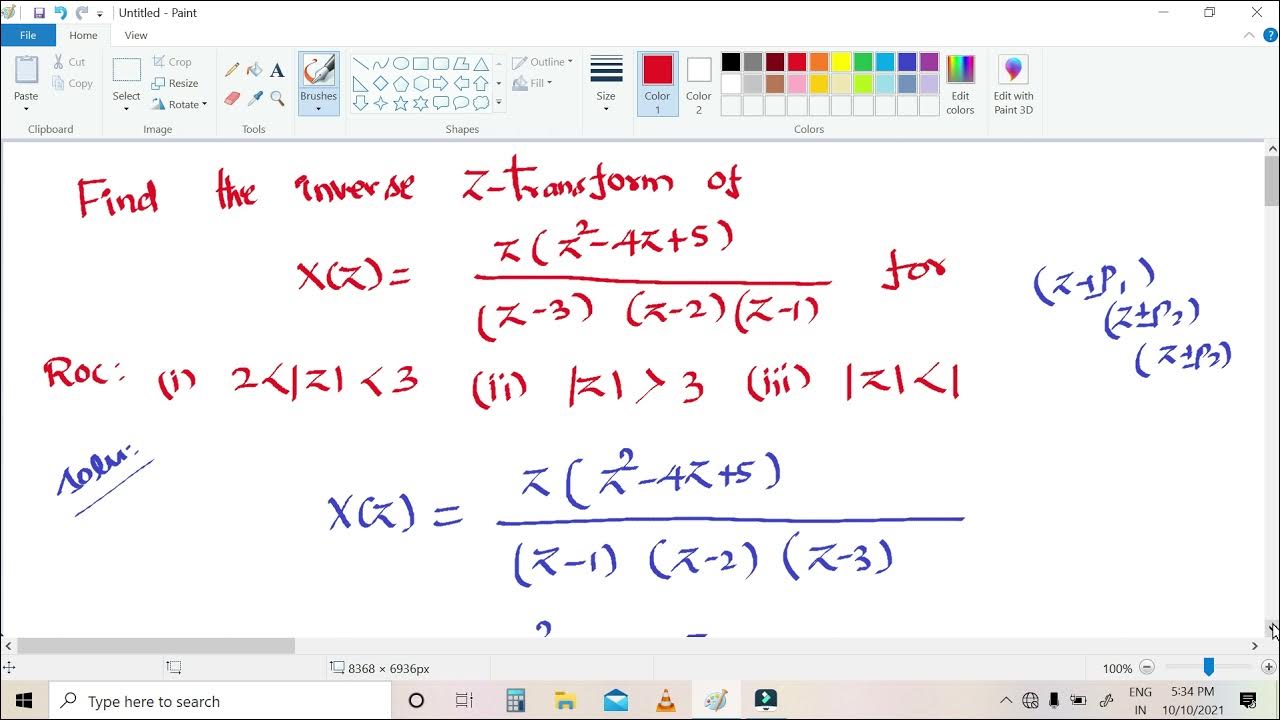 Untitled - Paint
File Home View
Paste Cut Copy Clipboard
Select Crop Resize Rotate Image
Tools
Brushes
Shapes Outline Fill
Size
Color 1 Color 2 Edit colors Colors
Edit with Paint 3D
Find the inverse z-transform of
X(z) = z(z²-4z+5) / (z-3) (z-2)(z-1) for
(z±P₁)
(z±P₂)
(z±P₃)
ROC: (i) 2<|z|<3 (ii) |z|>3 (iii) |z|<1
Solu:
X(z) = z(z²-4z+5) / (z-1) (z-2) (z-3)
8368 × 6936px
100%
Type here to search
ENG
IN
5:34 PM
10/10/2021